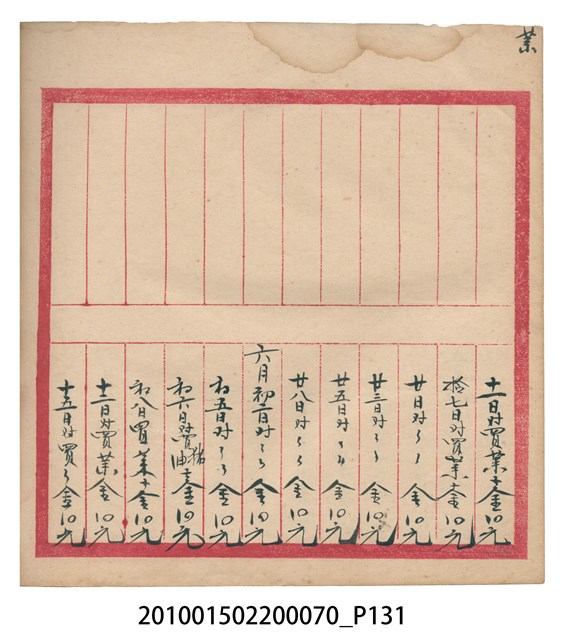 業
十一日对買業十金10元
拾七日对買業十金10元
廿日对〻〻金10元
廿三日对〻〻金10元
廿五日对〻〻金10元
廿八日对〻〻金10元
六月初二日对〻〻金10元
初五日对〻〻金10元
初六日对買猪油金10元
初八日買業十金10元
十二日对買業金10元
十五日对買〻金10元
201001502200070_P131